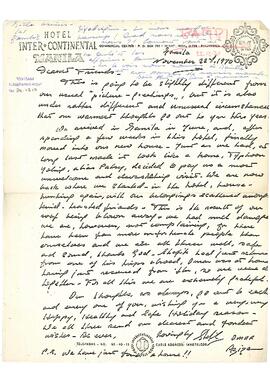 HOTEL
INTER·CONTINENTAL
MANILA
Manila
November 22, 1970
Dearest Friends -
This is going to be slightly different from
our usual picture - greetings, but it is also
under rather different and unusual circumstances
that our warmest thoughts go out to you this year.
We arrived in Manila in June, and, after
spending a few weeks in this hotel, finally
moved into our new house. Just as we had, at
long last made it look like a home, Typhoon
Yoling, alias Patsy, decided to pay us a most
unwelcome and devastating visit. We are now
back where we started - in the hotel, house-
hunting again, with our belongings scattered among
kind-hearted friends - This is the result of our
roof being blown away - we had much damage
we are, however, not complaining, for there
have been far more unfortunate people than
ourselves and we are all three well, safe
and sound, thank God. Shafik had just returned
from one of his trips abroad, Omar was at home
having just returned from school, so we were all
together. For all this we are extremely grateful.
Our thoughts, as always, go out to each
and every one of you, wishing you a very, very
Happy, Healthy and Safe Holiday Season -
We all three send our dearest and fondest
wishes. As ever,
Lovingly
Omar
Aziza
P.S. We have just found a home!!